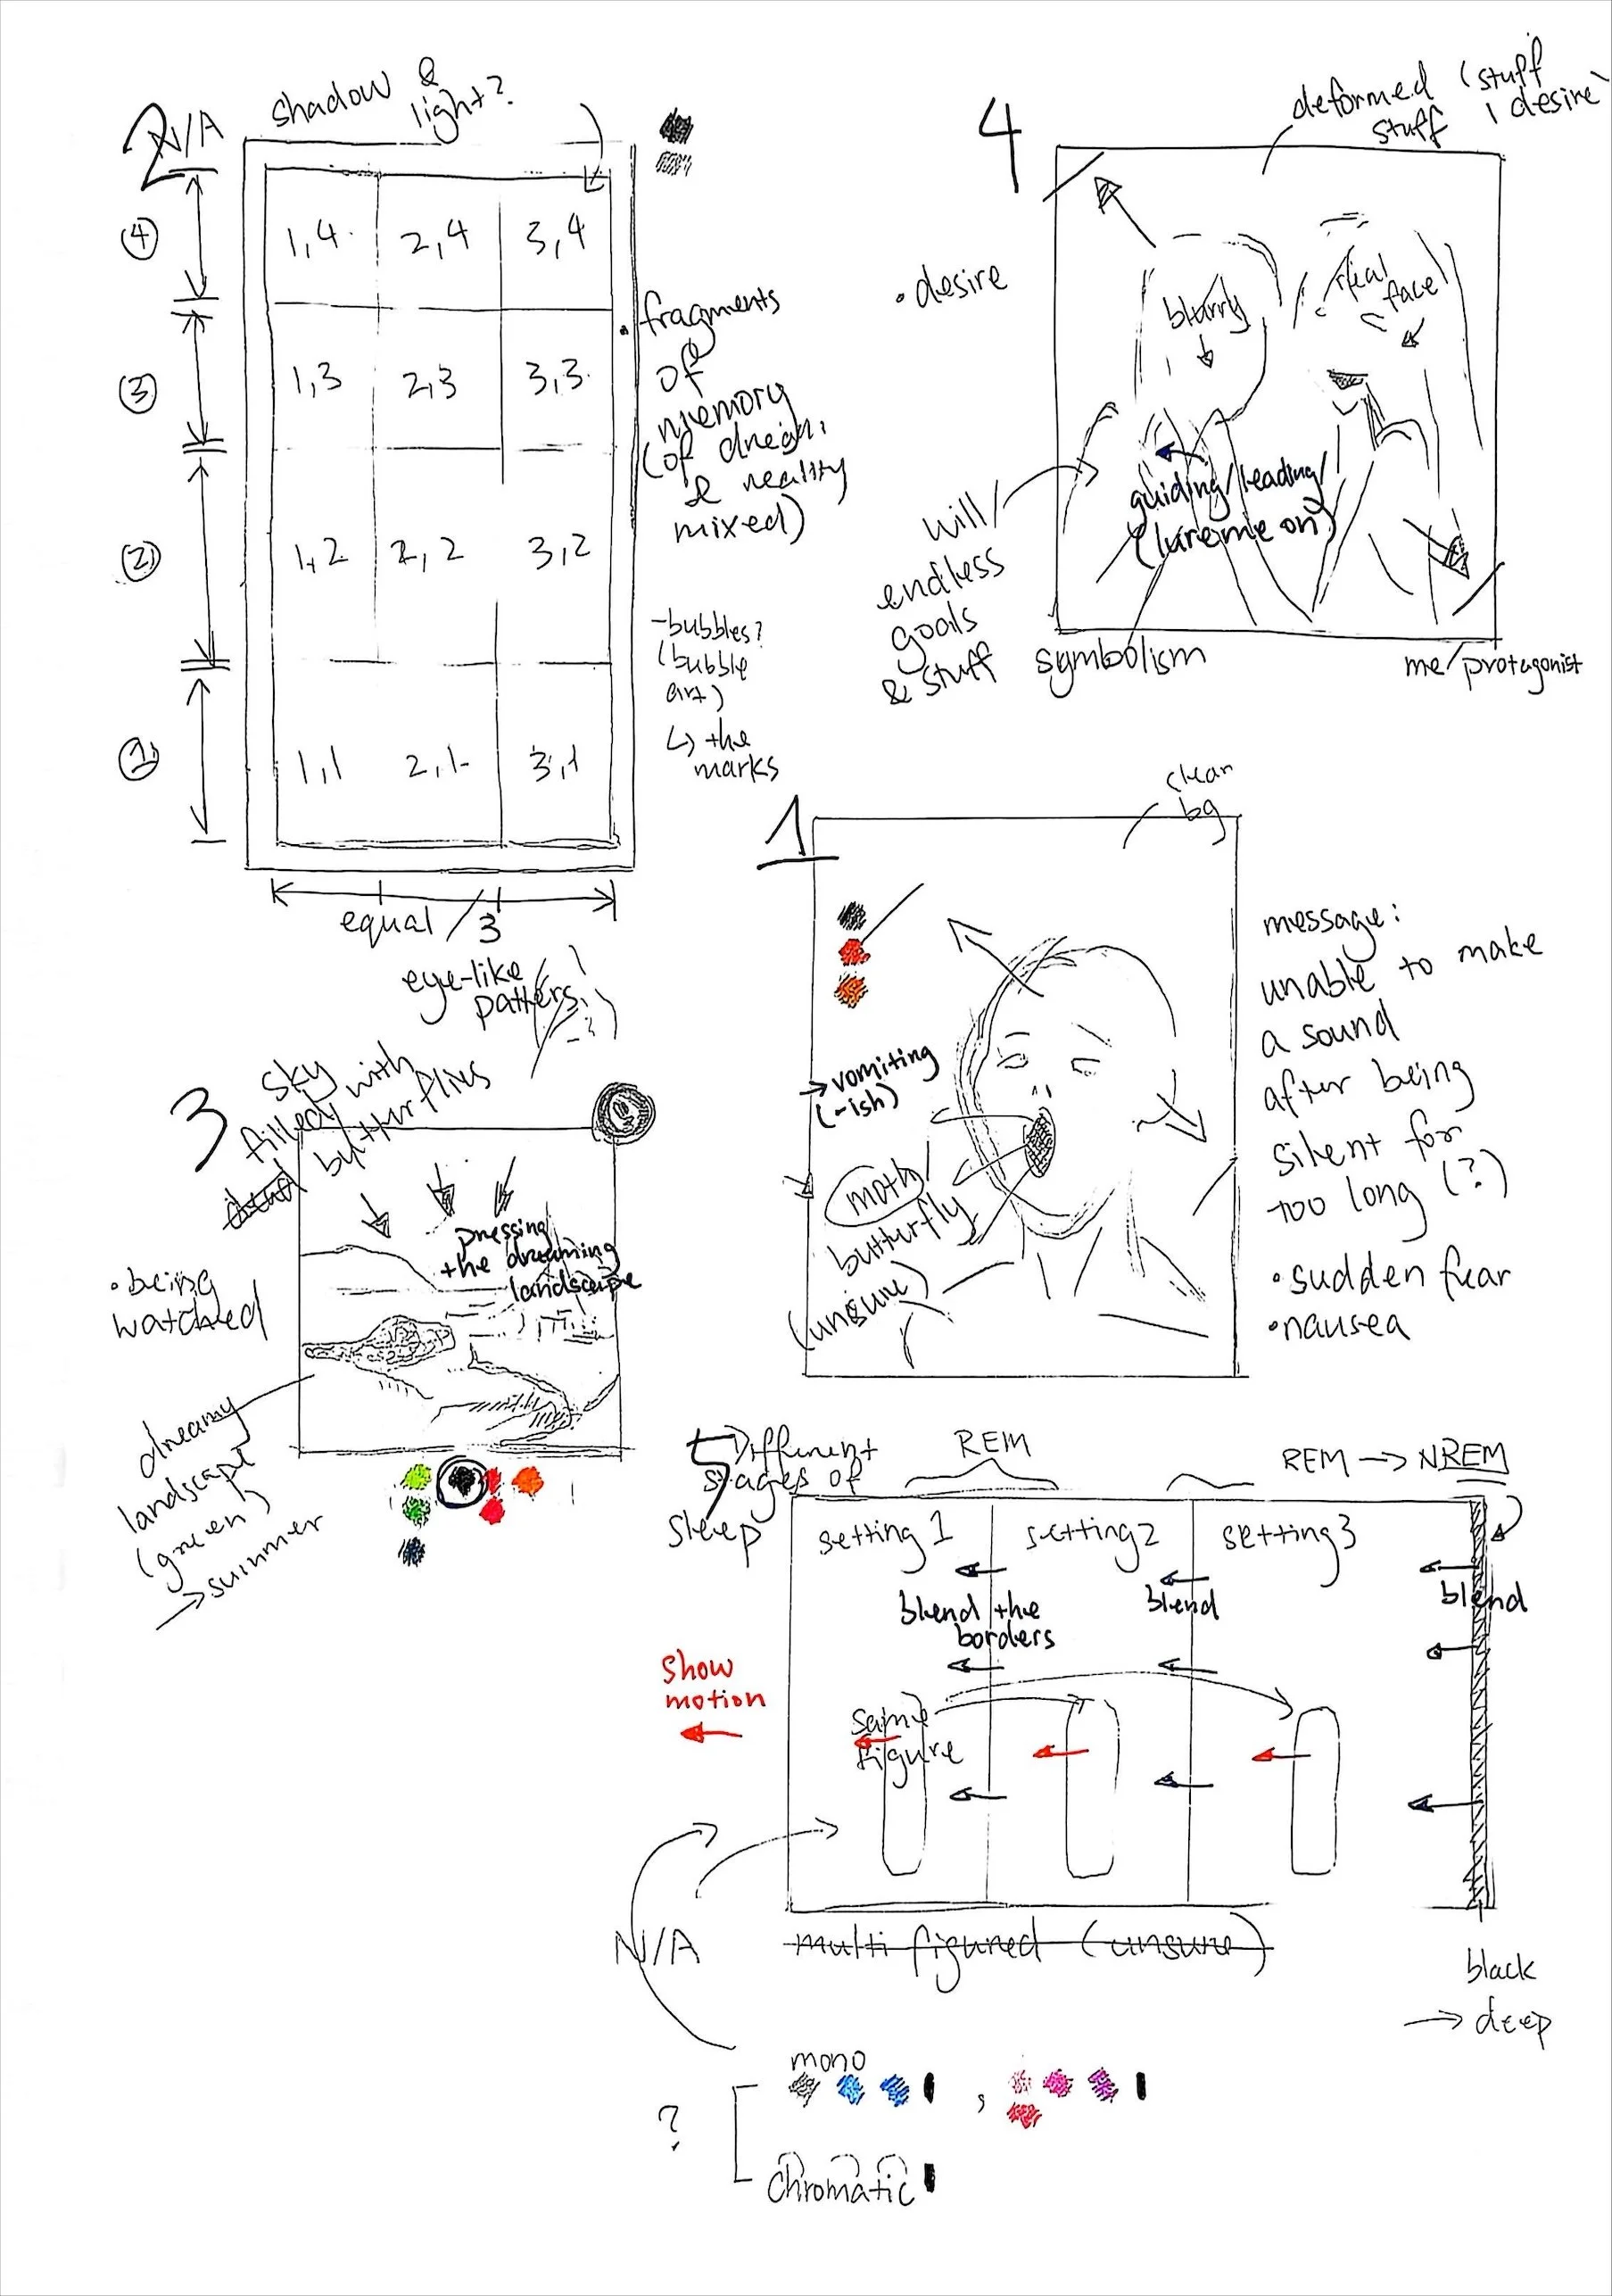 2
N/A
shadow &
light?
④
③
②
①
1,4
2,4
3,4
1,3
2,3
3,3
1,2
2,2
3,2
1,1
2,1
3,1
equal / 3
• fragments
of
memory
(of dream
& reality
mixed)
- bubbles?
(bubble
art)
↳ the
marks
4
deformed
stuff
(stuff
I desire)
• desire
blurry
real
face
guiding/leading/
(lure me on)
will/
endless
goals
& stuff
symbolism
me/protagonist
1
clean
bg
→ vomiting
(-ish)
moth/
butterfly
(unsure)
message:
unable to make
a sound
after being
silent for
too long (?)
• sudden fear
• nausea
3
eye-like
patters
sky
filled with
butterflies
pressing
the dreaming
landscape
• being
watched
dreamy
landscape
(green)
→ summer
5
Different
stages of
sleep
REM
REM → NREM
setting 1
setting 2
setting 3
blend the
borders
blend
blend
show
motion
same
figure
N/A
multi figured (unsure)
black
→ deep
mono
,
?
chromatic